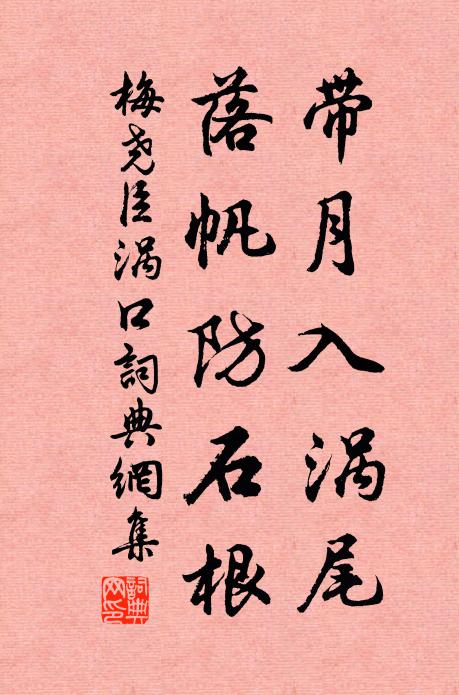 带月入涡尾
落帆防石根
梅尧臣涡口詞典網集
詞典网印